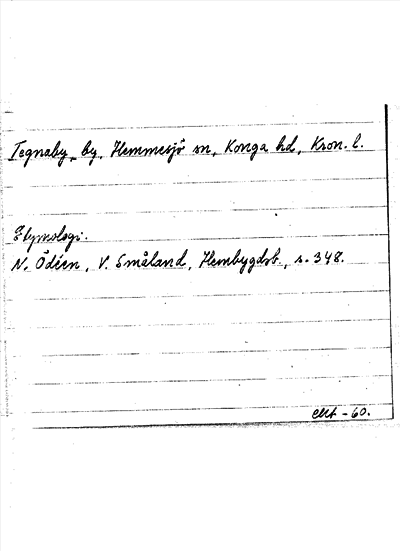 Tegnaby, by, Hemmesjö sn, Konga hd, Kron. l.
Etymologi.
N. Ödéen, V. Småland, Hembygdsb., s. 348.
-60.